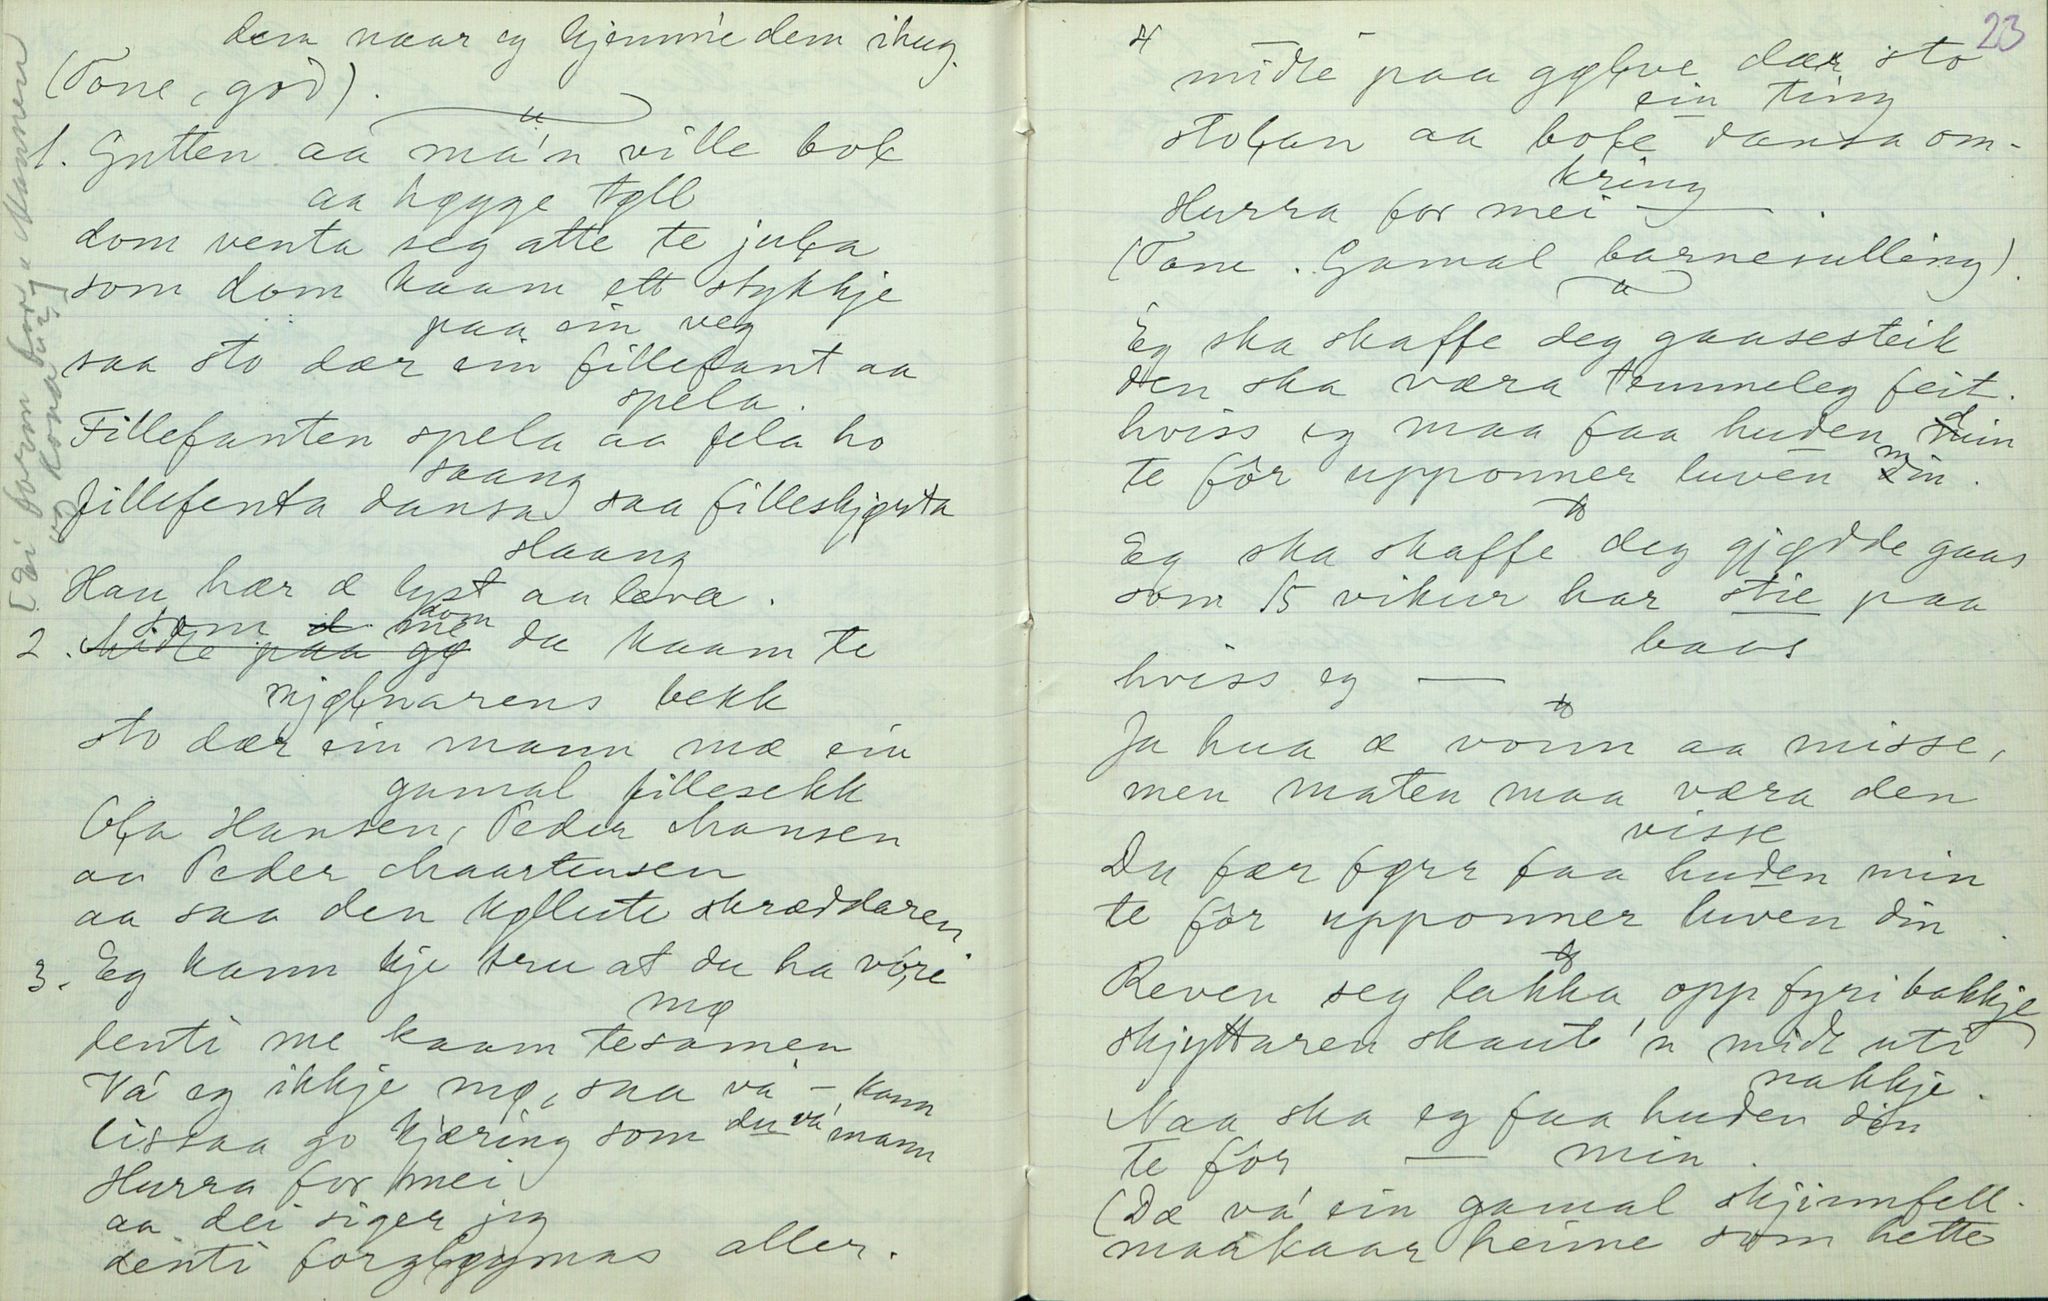 dem naar eg kjemme dem ihug.
(Tone, god).
1. Gutten aa ma'n ville bol
aa høgge tøll
dom venta seg atte te jula
som dom kaam ett stykkje
paa ein veg
saa sto dær ein fillefant aa
spela.
Fillefanten spela aa fela ho
saang
fillefenta dansa saa filleskjørta
slaang
Han hær æ lyst aa leva.
2. som dom du kaam te
mjølnarens bekk
sto dær ein mann mæ ein
gamal fillesekk
Ola Hansen, Peder Mansen
aa Peder Maartensen
aa saa den køllete skræddaren
3. Eg kann kje tru at du ha vøre
mø
denti me kaam tesamen
Va' eg ikkje mø, saa va' – kann
lissaa go kjæring som du va' mann
Hurra for mei
aa dei siger jeg
denti forgløymas aller.
[Ei form fraa Mannen
og kona]
23
4
midle paa gølve dær sto
ein ting
stolan aa bole dansa om-
kring
Hurra for mei — .
(Tone. Gamal barnesulling).
Eg ska skaffe deg gaasesteik
den ska væra temmeleg feit.
hviss eg maa faa huden din
te fôr upponner luven min.
Eg ska skaffe deg gjødde gaas
som 15 vikur har stie paa
baas
hviss eg —
Ja hua æ vonn aa misse,
men maten maa væra den
visse
Du fær førr faa huden min
te fôr upponner luven din.
Reven seg lakka opp fyri bakkje
skjyttaren skaut 'n midt uti
nakkje.
Naa ska eg faa huden din
te fôr — min.
(Dæ va' ein gamal skjinnfell-
maakaar heime som hette